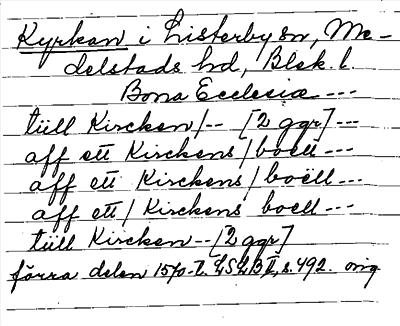 Kyrkan i Listerby sn, Me-
delstads hd, Blek. l.
Bona Ecclesiæ ---
tüll Kircken/-- [2 ggr] ---
aff ett Kirckens/boell ---
aff ett Kirckens/boëll ---
aff ett/Kirckens boell ---
tüll Kircken -- [2 ggr]
förra delen 1570-t. LSLB II, s. 492. orig